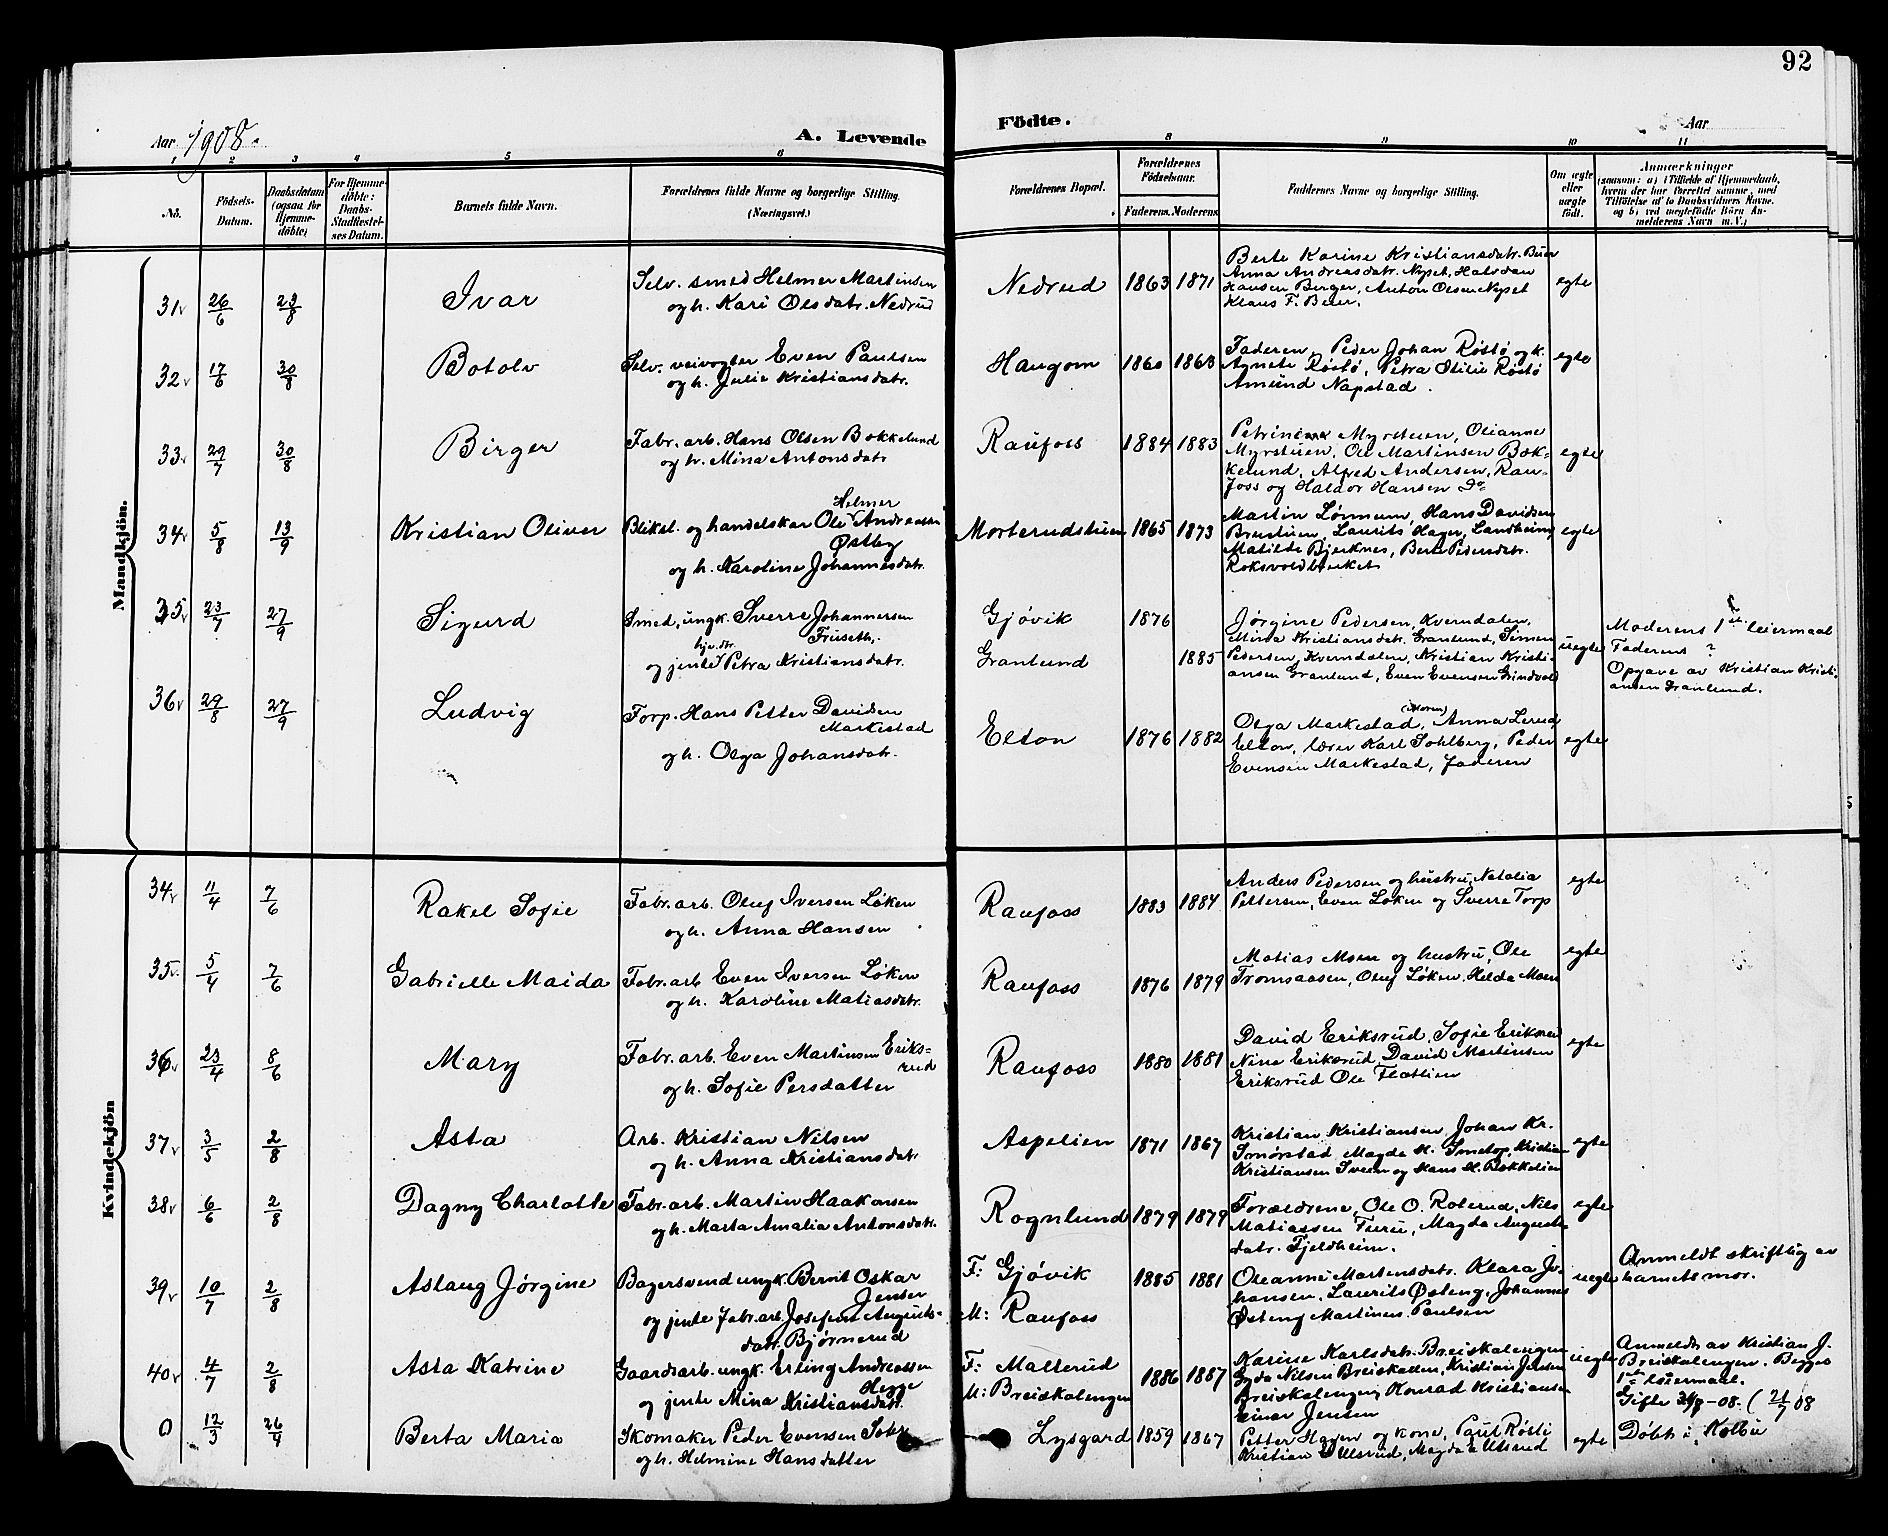 92
Aar 1908.
A. Levende
Födte.
Aar
1 2 3 4 5 6 8 9 10 11
No.
Födsels-
Datum.
Daabsdatum
(ogsaa for
Hjemme-
döbte)
For Hjemme-
döbte:
Daabs-
Stadfæstel-
ses Datum.
Barnets fulde Navn.
Forældrenes fulde Navne og borgerlige Stilling.
(Næringsvei.)
Forældrenes Bopæl.
Forældrenes
Födselsaar.
Faderens. Moderens
Faddernes Navne og borgerlige Stilling.
Om ægte
eller
uægte
födt.
Anmærkninger
(saasom: a) i Tilfælde af Hjemmedaab,
hvem der har forrettet samme, med
Tilföielse af to Daabsvidners Navne.
og b) ved uægtefödte Börn An-
melderens Navn m. V.)
Mandkjön.
31 26/6 23/8 Ivar
Selv. smed Helmer Martinsen
og h. Kari Olsdatr. Nedrud
Nedrud 1863 1871
Berte Karine Kristiansdatr. Beier
Anna Andreasdatr. Nyset, Halvdan
Hansen Berger, Anton Olsen Nyset
Klaus F. Beier.
egte
32 17/6 30/8 Botolv
Selv. veivogter Even Paulsen
og h. Julie Kristiansdatr.
Haugom 1860 1863
Faderen, Peder Johan Røstø og k.
Agnete Røstø, Petra Otilie Røstø
Amund Napstad.
egte
33 29/7 30/8 Birger
Fabr. arb. Hans Olsen Bokkelund
og h. Mina Antonsdatr
Raufoss 1884 1883
Petrine Myrstuen, Oleanne
Myrstuen, Ole Martinsen Bok-
kelund, Alfred Andersen, Rau-
foss og Haldor Hansen Do
egte
34 5/8 13/9 Kristian Oliver
Helmer
Bliksl. og handelskar Ole Andreassen
Østby
og h. Karoline Johannesdatr.
Morterudstuen 1865 1873
Martin Lønnum, Hans Davidsen
Brustuen, Laurits Hager, Landheim
Matilde Bjerknes, Berte Pedersdatr.
Roksvoldbrenket
egte
35 23/7 27/9 Sigurd
Smed, ungk. Sverre Johannersen
Fruseth,
hjv. dtr.
og jente Petra Kristiansdatr.
Gjøvik 1876
Granlund 1885
Jørgine Pedersen, Kverndalen,
Mina Kristiansdatr. Granlund, Simen
Pedersen, Kverndalen, Kristian Kristi-
ansen Granlund, Even Evensen Grindvold
uegte
Moderens 1ste leiermaal
Faderens ?
Opgave av Kristian Kristi-
ansen Granlund.
36 29/8 27/9 Ludvig
Torp. Hans Petter Davidsen
Markestad
og h. Olga Johansdatr.
Elton 1876 1882
(Moren)
Olga Markestad, Anna Lerud
Elton, lærer Karl Sohlberg, Peder
Evensen Markestad, faderen
egte
Kvindekjön
34 11/4 7/6 Rakel Sofie
Fabr. arb. Oluf Iversen Løken
og h. Anna Hansen
Raufoss 1883 1884
Anders Pedersen og hustru, Natalia
Pettersen, Even Løken og Sverre Torp
egte
35 5/4 7/6 Gabrielle Maida
Fabr. arb Even Iversen Løken
og h. Karoline Matiasdatr.
Raufoss 1876 1879
Matias Moen og hustru, Ole
Tromsaasen, Oluf Løken, Helda Moen
egte
36 23/4 8/6 Mary
Fabr. arb. Even Martinsen Eriks-
rud
og h. Sofie Persdatter
Raufoss 1880 1881
David Eriksrud, Sofie Eriksrud
Nina Eriksrud, David Martinsen
Eriksrud Ole Flatlien
egte
37 3/5 2/8 Asta
Arb. Kristian Nilsen
og h. Anna Kristiansdatr
Aspelien 1871 1867
Kristian Kristiansen, Johan Kr.
Smørstad Magda H. Kristian
Kristiansen Sveen og Hans H. Bekkelien
egte
38 6/6 2/8 Dagny Charlotte
Fabr. arb. Martin Haakonsen
og h. Marta Amalia Antonsdatr.
Rognlund 1879 1879
Forældrene, Ole O. Roterud, Nils
Matiassen Furu, Magda Auguste-
datr. Fjeldheim.
egte
39 10/7 2/8 Aslaug Jørgine
Bagersvend ungk. Bernt Oskar
Jensen
og jente fabr. arb. Josefine Augusts-
datr. Bjørnerud
F: Gjøvik
M: Raufoss
1885 1881
Oleanne Martensdatr. Klara Jo-
hansen, Laurits Østeng, Johannes
Østeng Martinus Paulsen
uegte
Anmeldt skriftlig av
barnets mor.
40 4/7 2/8 Asta Katrine
Gaardsarb. ungk. Erling Andreassen
Hegge
og jente Mina Kristiansdatr.
F: Malterud
M: Breiskalengen
1886 1887
Karine Karlsdatr. Breiskalengen
Gyda Nilsen Breiskallen, Kristian Jensen
Breiskalengen, Konrad Kristiansen
Einar Jensen
uegte
Anmeldt av Kristian J.
Breiskalengen. Begges
1ste leiermaal.
Gifte -08. (21/7 08
0 12/3 26/4 Berta Maria
Skomaker Peder Evensen
og h. Helmine Hansdatter
Lysgard 1859 1867
Petter Hagen og kone, Paul Røsli
Kristian Ullsrud, Magda Ullsrud
egte
Døbt i Kolbu